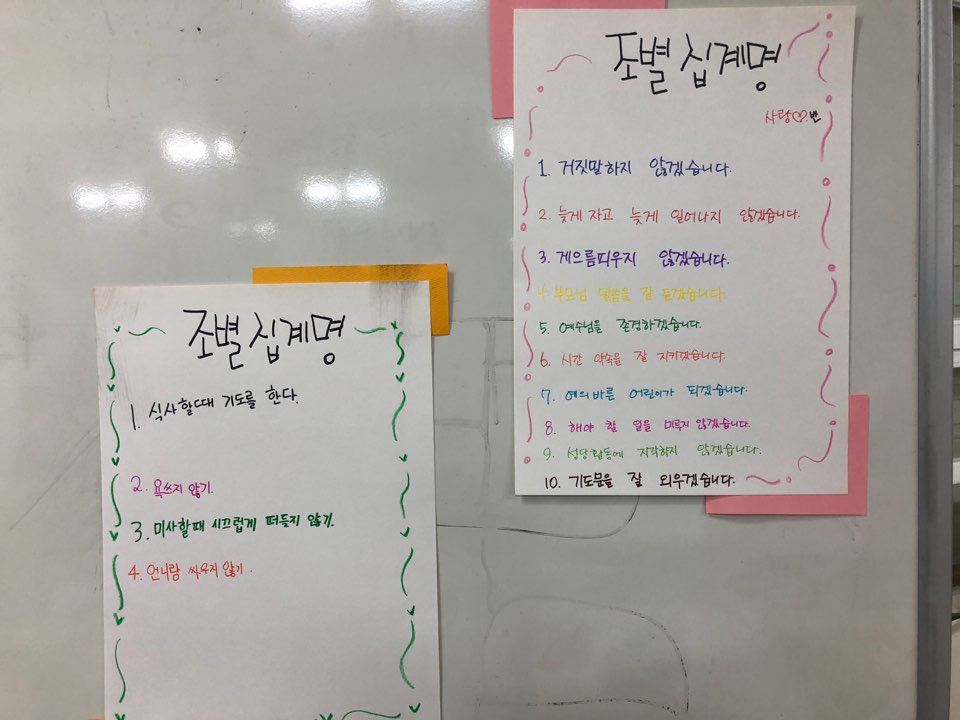 조별 십계명
1. 식사할때 기도를 한다.
2. 욕쓰지 않기.
3. 미사할때 시끄럽게 떠들지 않기.
4. 언니랑 싸우지 않기.
조별 십계명
사랑♡반
1. 거짓말하지 않겠습니다.
2. 늦게 자고 늦게 일어나지 않겠습니다.
3. 게으름피우지 않겠습니다.
4. 부모님 말씀을 잘 듣겠습니다.
5. 예수님을 존경하겠습니다.
6. 시간 약속을 잘 지키겠습니다.
7. 예의바른 어린이가 되겠습니다.
8. 해야 할 일을 미루지 않겠습니다.
9. 성당활동에 지각하지 않겠습니다.
10. 기도문을 잘 외우겠습니다.